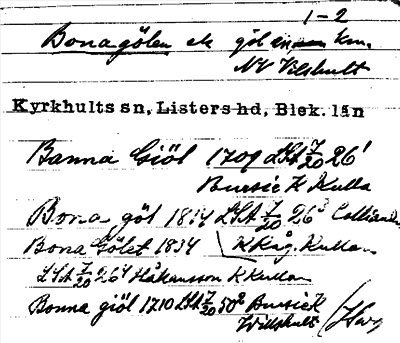 1-2
Bonagölen ek göl
NV Vilshult
Kyrkhults sn, Listers hd, Blek. län
Banna Giöl 1709 LSA 7/20 26¹
Bursie K Kulla
Bona göl 1834 LSA 7/20 26³
Bona Gölet 1834 K Kåg. Kullan
LSA 7/20 26⁴ Håkansson K Kullan
Bonna giöl 1710 LSA 7/20 50² Bursie K
Willshult